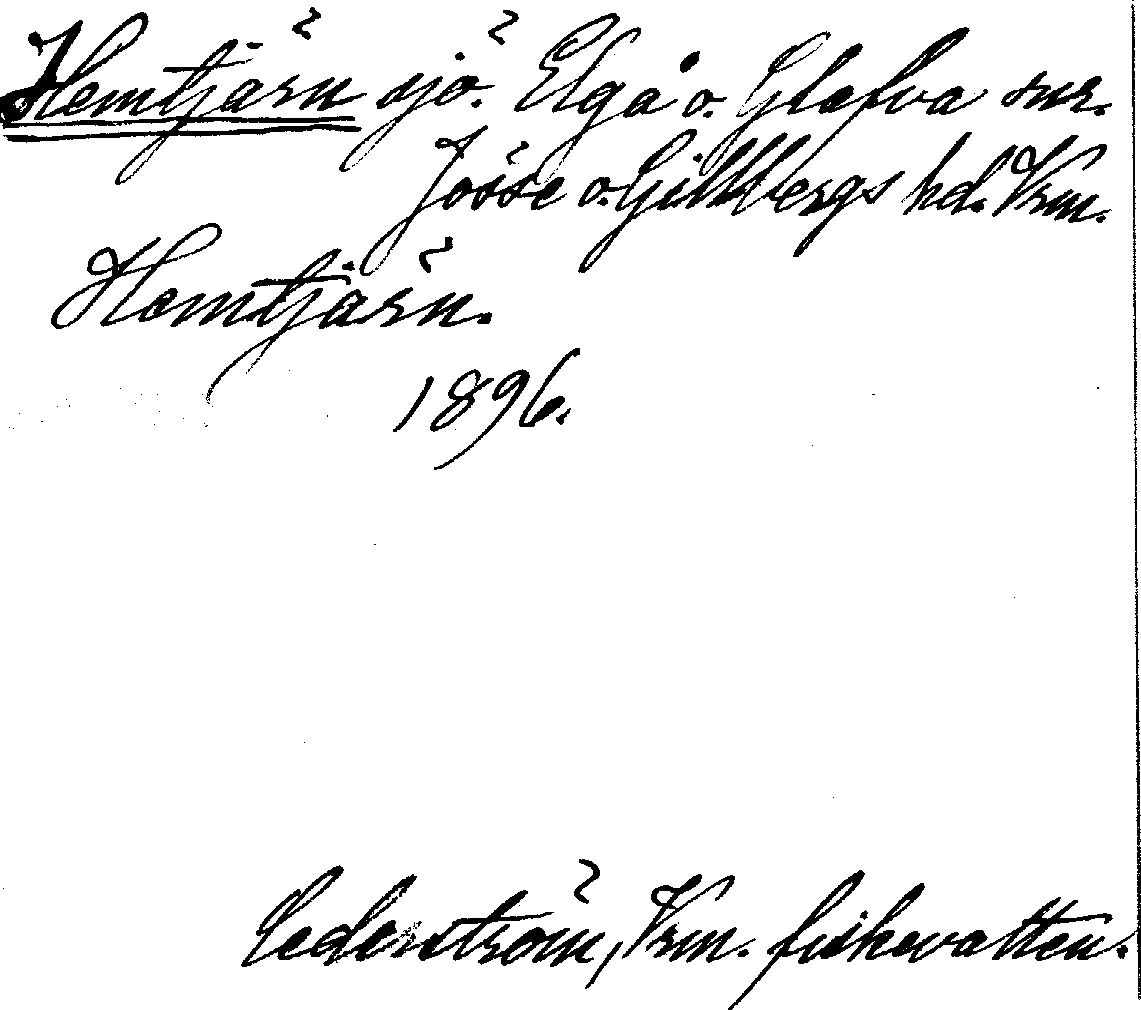 Hemtjärn sjö. Elgå o. Glafva snr.
Jösse o. Gillbergs hd. Vrm.
Hemtjärn.
1896.
Cederström, Vrm. fiskevatten.